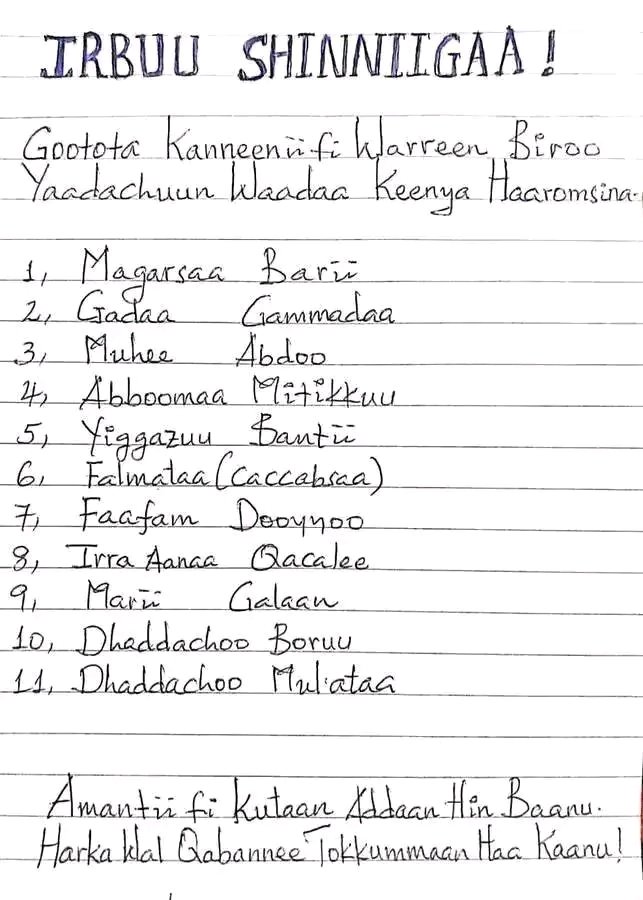 IRBUU SHINNIIGAA!
Gootota Kanneenii fi Warreen Biroo
Yaadachuun Waadaa Keenya Haaromsina.
1, Magarsaa Barii
2, Gadaa Gammadaa
3, Muhee Abdoo
4, Abboomaa Mitikkuu
5, Yiggazuu Bantii
6, Falmataa (Caccabsaa)
7, Faafam Dooyyoo
8, Irra Aanaa Qacalee
9, Marii Galaan
10, Dhaddachoo Boruu
11, Dhaddachoo Mul'ataa
Amantii fi Kutaan Addaan Hin Baanu.
Harka Wal Qabannee Tokkummaan Haa Kaanu!